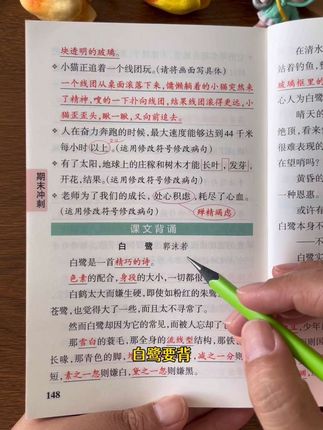 块透明的玻璃。
小猫正追着一个线团玩。(请将画面写具体)
一个线团从桌面滚落下来,慵懒躺着的小猫突然来
了精神,嗖的一下扑向线团,结果线团滚得更远,小
猫歪歪头,瞅一瞅,又向前追去。
人在奋力奔跑的时候,最大速度能够达到44千米
每小时以上。(运用修改符号修改病句)
有了太阳,地球上的庄稼和树木才能长叶,发芽,
开花,结果。(运用修改符号修改病句)
老师为了我们的成长,处心积虑,耗尽了心血。
(运用修改符号修改病句) 殚精竭虑
期末冲刺
课文背诵
白鹭 郭沫若
白鹭是一首精巧的诗。
色素的配合,身段的大小,一切都很
白鹤太大而嫌生硬,即使如粉红的朱鹭
苍鹭,也觉得大了一些,而且太不寻常了。
然而白鹭却因为它的常见,而被人忘却了
那雪白的蓑毛,那全身的流线型结构,那铁
长喙,那青色的脚,
减之一分则
短,素之一忽则嫌白,黛之一忽则嫌黑。
148
白鹭要背
在清水
站着钓鱼,
玻璃框里的
心人为白鹭
晴天的
绝顶,看来
很难表现
在望哨吗?
黄昏的
一种恩惠。
或许
白鹭本身不
白鹭